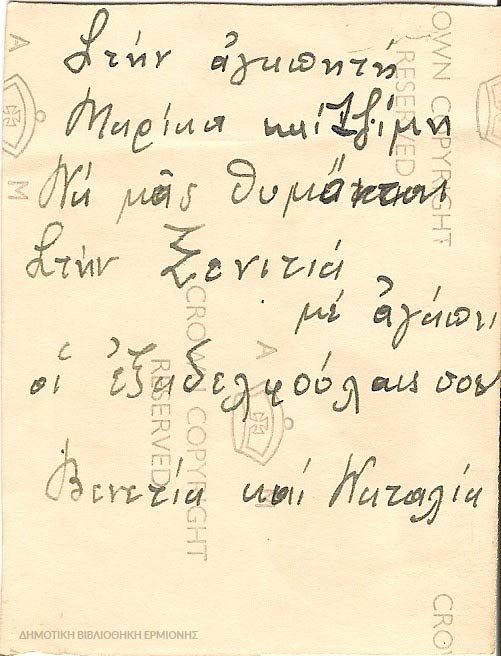 Στήν ἀγαπητή
Μαρίκα καί Τζίμη
Νά μᾶς θυμᾶται
Στήν Ξενιτιά
μέ ἀγάπη
οἱ ἐξαδελφούλαις σου
Βενετία καί Ναταλία
CROWN COPYRIGHT
RESERVED
A M
CROWN COPYRIGHT
RESERVED
A M
CRO
ΔΗΜΟΤΙΚΗ ΒΙΒΛΙΟΘΗΚΗ ΕΡΜΙΟΝΗΣ